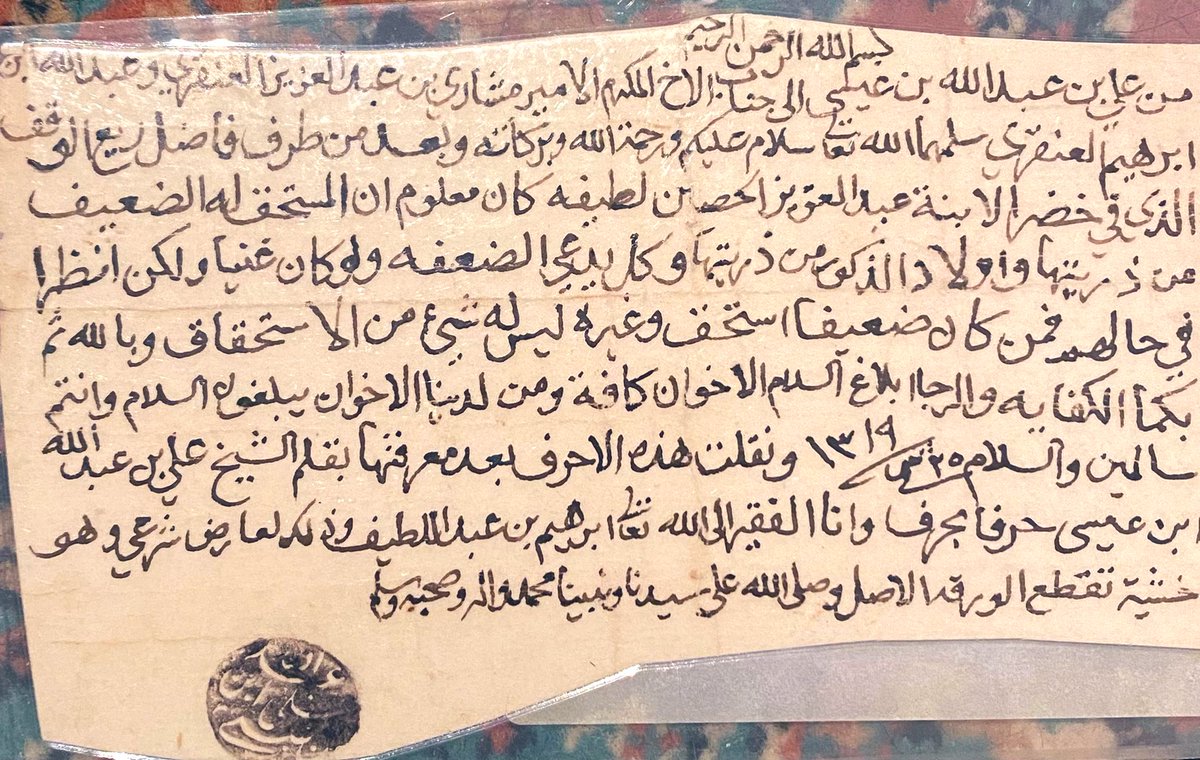 بسم الله الرحمن الرحيم
من علي بن عبد الله بن عيسى الى جناب الاخ المكرم الامير مشاري بن عبد العزيز العنقري وعبد الله ابن
ابرهيم العنقري سلمهما الله تعا سلام عليكم ورحمة الله وبركاته وبعد من طرف فاضل ريع الوقف
الذي في خضرا لابنة عبد العزيز الحصين لطيفه كان معلوم ان المستحق له الضعيف
من ذريتها واولاد الذكور من ذريتها وكل يدعي الضعفه ولو كان غنيا ولكن انظرا
في حالهم فمن كان ضعيفا استحق وغيره ليس له شيء من الاستحقاق وبالله ثم
بكما الكفايه والرجا ابلاغ السلام الاخوان كافة ومن لدينا الاخوان يبلغون السلام وانتم
سالمين والسلام ١٣١٩ ونقلت هذه الاحرف بعد معرفتها بقلم الشيخ علي بن عبد الله
ابن عيسى حرفا بحرف وانا الفقير الى الله تعا ابرهيم بن عبد اللطيف وذلك لعارض شرعي وهو
خشية تقطع الورقه الاصل وصلى الله على سيدنا ونبينا محمد واله وصحبه وسلم